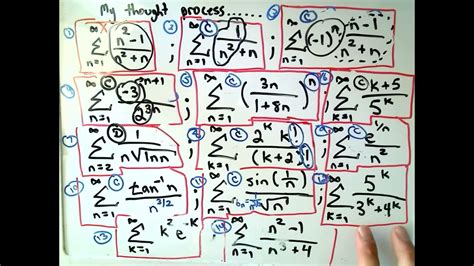 My thought process......
① ∞ ∑ n=1 n²-1 / n²+n ; ② C ∞ ∑ n=1 1 / n²+n ; ③ C ∞ ∑ n=1 (-1)ⁿ n-1 / n²+n
④ C ∞ ∑ n=1 (-3)ⁿ⁺¹ / 2³ⁿ ; ⑤ C ∞ ∑ n=1 (3n / 1+8n)ⁿ ; ⑥ C ∞ ∑ k=1 k+5 / 5ᵏ
⑦ D ∞ ∑ n=2 1 / n√ln n ; ⑧ C ∞ ∑ k=1 2ᵏ k! / (k+2)! ; ⑨ C ∞ ∑ n=1 e^(1/n) / n²
⑩ C ∞ ∑ n=1 tan⁻¹n / n^(3/2) ; ⑪ C ∞ ∑ n=1 sin(1/n) / √n ; ⑫ ∞ ∑ k=1 5ᵏ / 3ᵏ+4ᵏ
⑬ ∞ ∑ k=1 k e⁻ᵏ ; ⑭ ∞ ∑ n=1 n²-1 / n³+4